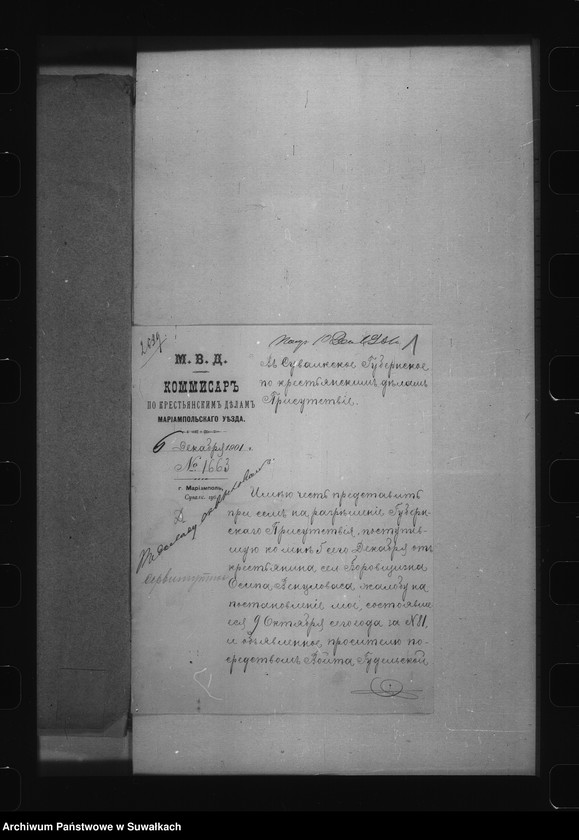 М. В. Д.
КОММИСАРЪ
ПО КРЕСТЬЯНСКИМЪ ДѢЛАМЪ
МАРІАМПОЛЬСКАГО УѢЗДА.
6 Декабря 1901 г.
№ 1663
г. Маріамполь,
Въ Сувалкское Губернское
по крестьянскимъ дѣламъ
Присутствіе.
Имѣю честь представить
при семъ на разрѣшеніе Губерн-
скаго Присутствія, поступив-
шую ко мнѣ 5 сего Декабря отъ
крестьянина сел. Боровщизна
Осипа Венцловаса жалобу на
постановленіе мое, состоявше
еся 9 Октября сего года за № 11,
и объявленное просителю по-
средствомъ Войта Гудельской
Archiwum Państwowe w Suwałkach